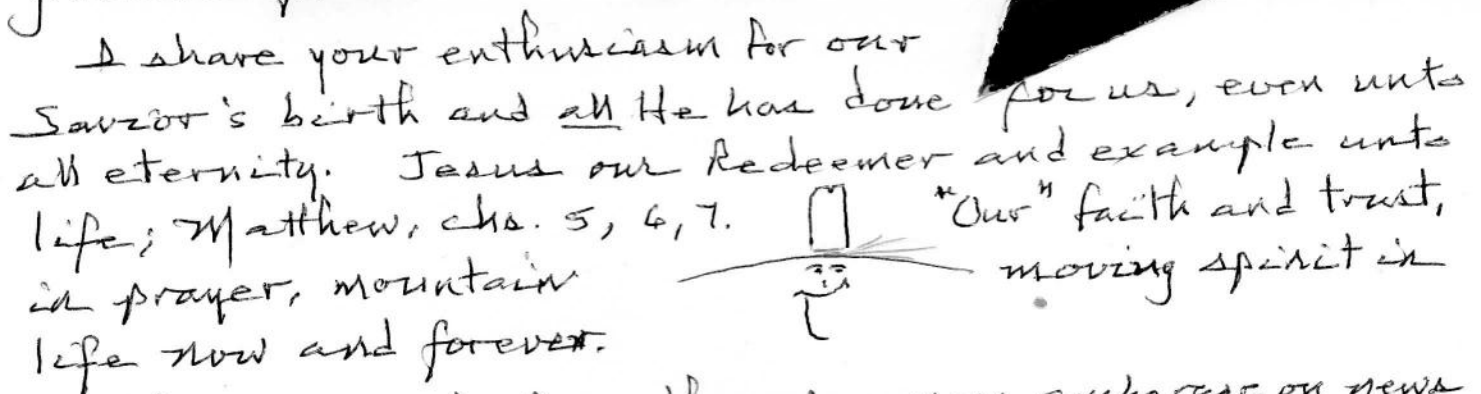 I share your enthusiasm for our
Savior's birth and all He has done for us, even unto
all eternity. Jesus our Redeemer and example unto
life; Matthew, chs. 5, 6, 7. "Our" faith and trust,
in prayer, mountain moving spirit in
life now and forever.
on news